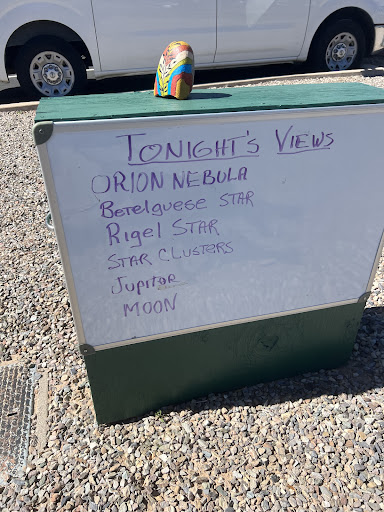 TONIGHT'S VIEWS
ORION NEBULA
Betelguese STAR
Rigel STAR
STAR CLUSTERS
Jupitor
MOON